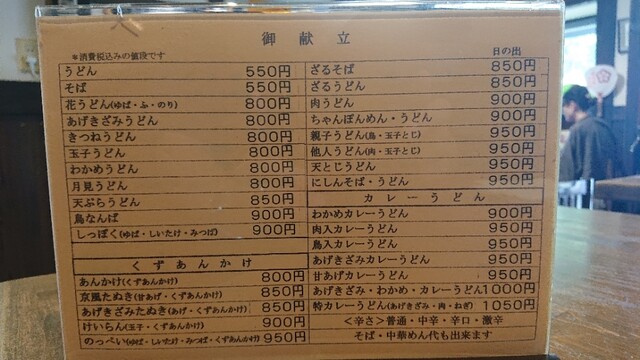 御献立
＊消費税込みの値段です
日の出
うどん 550円
そば 550円
花うどん(ゆば・ふ・のり) 800円
あげきざみうどん 800円
きつねうどん 800円
玉子うどん 800円
わかめうどん 800円
月見うどん 800円
天ぷらうどん 850円
鳥なんば 900円
しっぽく(ゆば・しいたけ・みつば) 900円
くずあんかけ
あんかけ(くずあんかけ) 800円
京風たぬき(甘あげ・くずあんかけ) 850円
あげきざみたぬき(あげ・くずあんかけ) 850円
けいらん(玉子・くずあんかけ) 900円
のっぺい(ゆば・しいたけ・みつば・くずあんかけ) 950円
ざるそば 850円
ざるうどん 850円
肉うどん 900円
ちゃんぽんめん・うどん 900円
親子うどん(鳥・玉子とじ) 950円
他人うどん(肉・玉子とじ) 950円
天とじうどん 950円
にしんそば・うどん 950円
カレーうどん
わかめカレーうどん 900円
肉入カレーうどん 950円
鳥入カレーうどん 950円
あげきざみカレーうどん 950円
甘あげカレーうどん 950円
あげきざみ・わかめ・カレーうどん 1000円
特カレーうどん(あげきざみ・肉・ねぎ) 1050円
＜辛さ＞普通・中辛・辛口・激辛
そば・中華めん代も出来ます